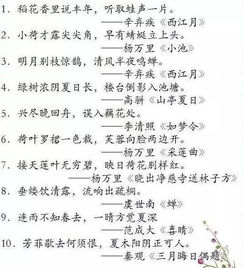 1、稻花香里说丰年，听取蛙声一片。
——辛弃疾《西江月》
2、小荷才露尖尖角，早有蜻蜓立上头。
——杨万里《小池》
3、明月别枝惊鹊，清风半夜鸣蝉。
——辛弃疾《西江月》
4、绿树浓阴夏日长，楼台倒影入池塘。
——高骈《山亭夏日》
5、兴尽晚回舟，误入藕花处。
——李清照《如梦令》
6、荷叶罗裙一色裁，芙蓉向脸两边开。
——杨万里《采莲曲》
7、接天莲叶无穷碧，映日荷花别样红。
——《晓出净慈寺送林子方》
8、垂緌饮清露，流响出疏桐。
——虞世南《蝉》
9、连雨不知春去，一晴方觉夏深
——范成大《喜晴》
10、芳菲歇去何须恨，夏木阴阴正可人。
——秦观《三月晦日偶题》